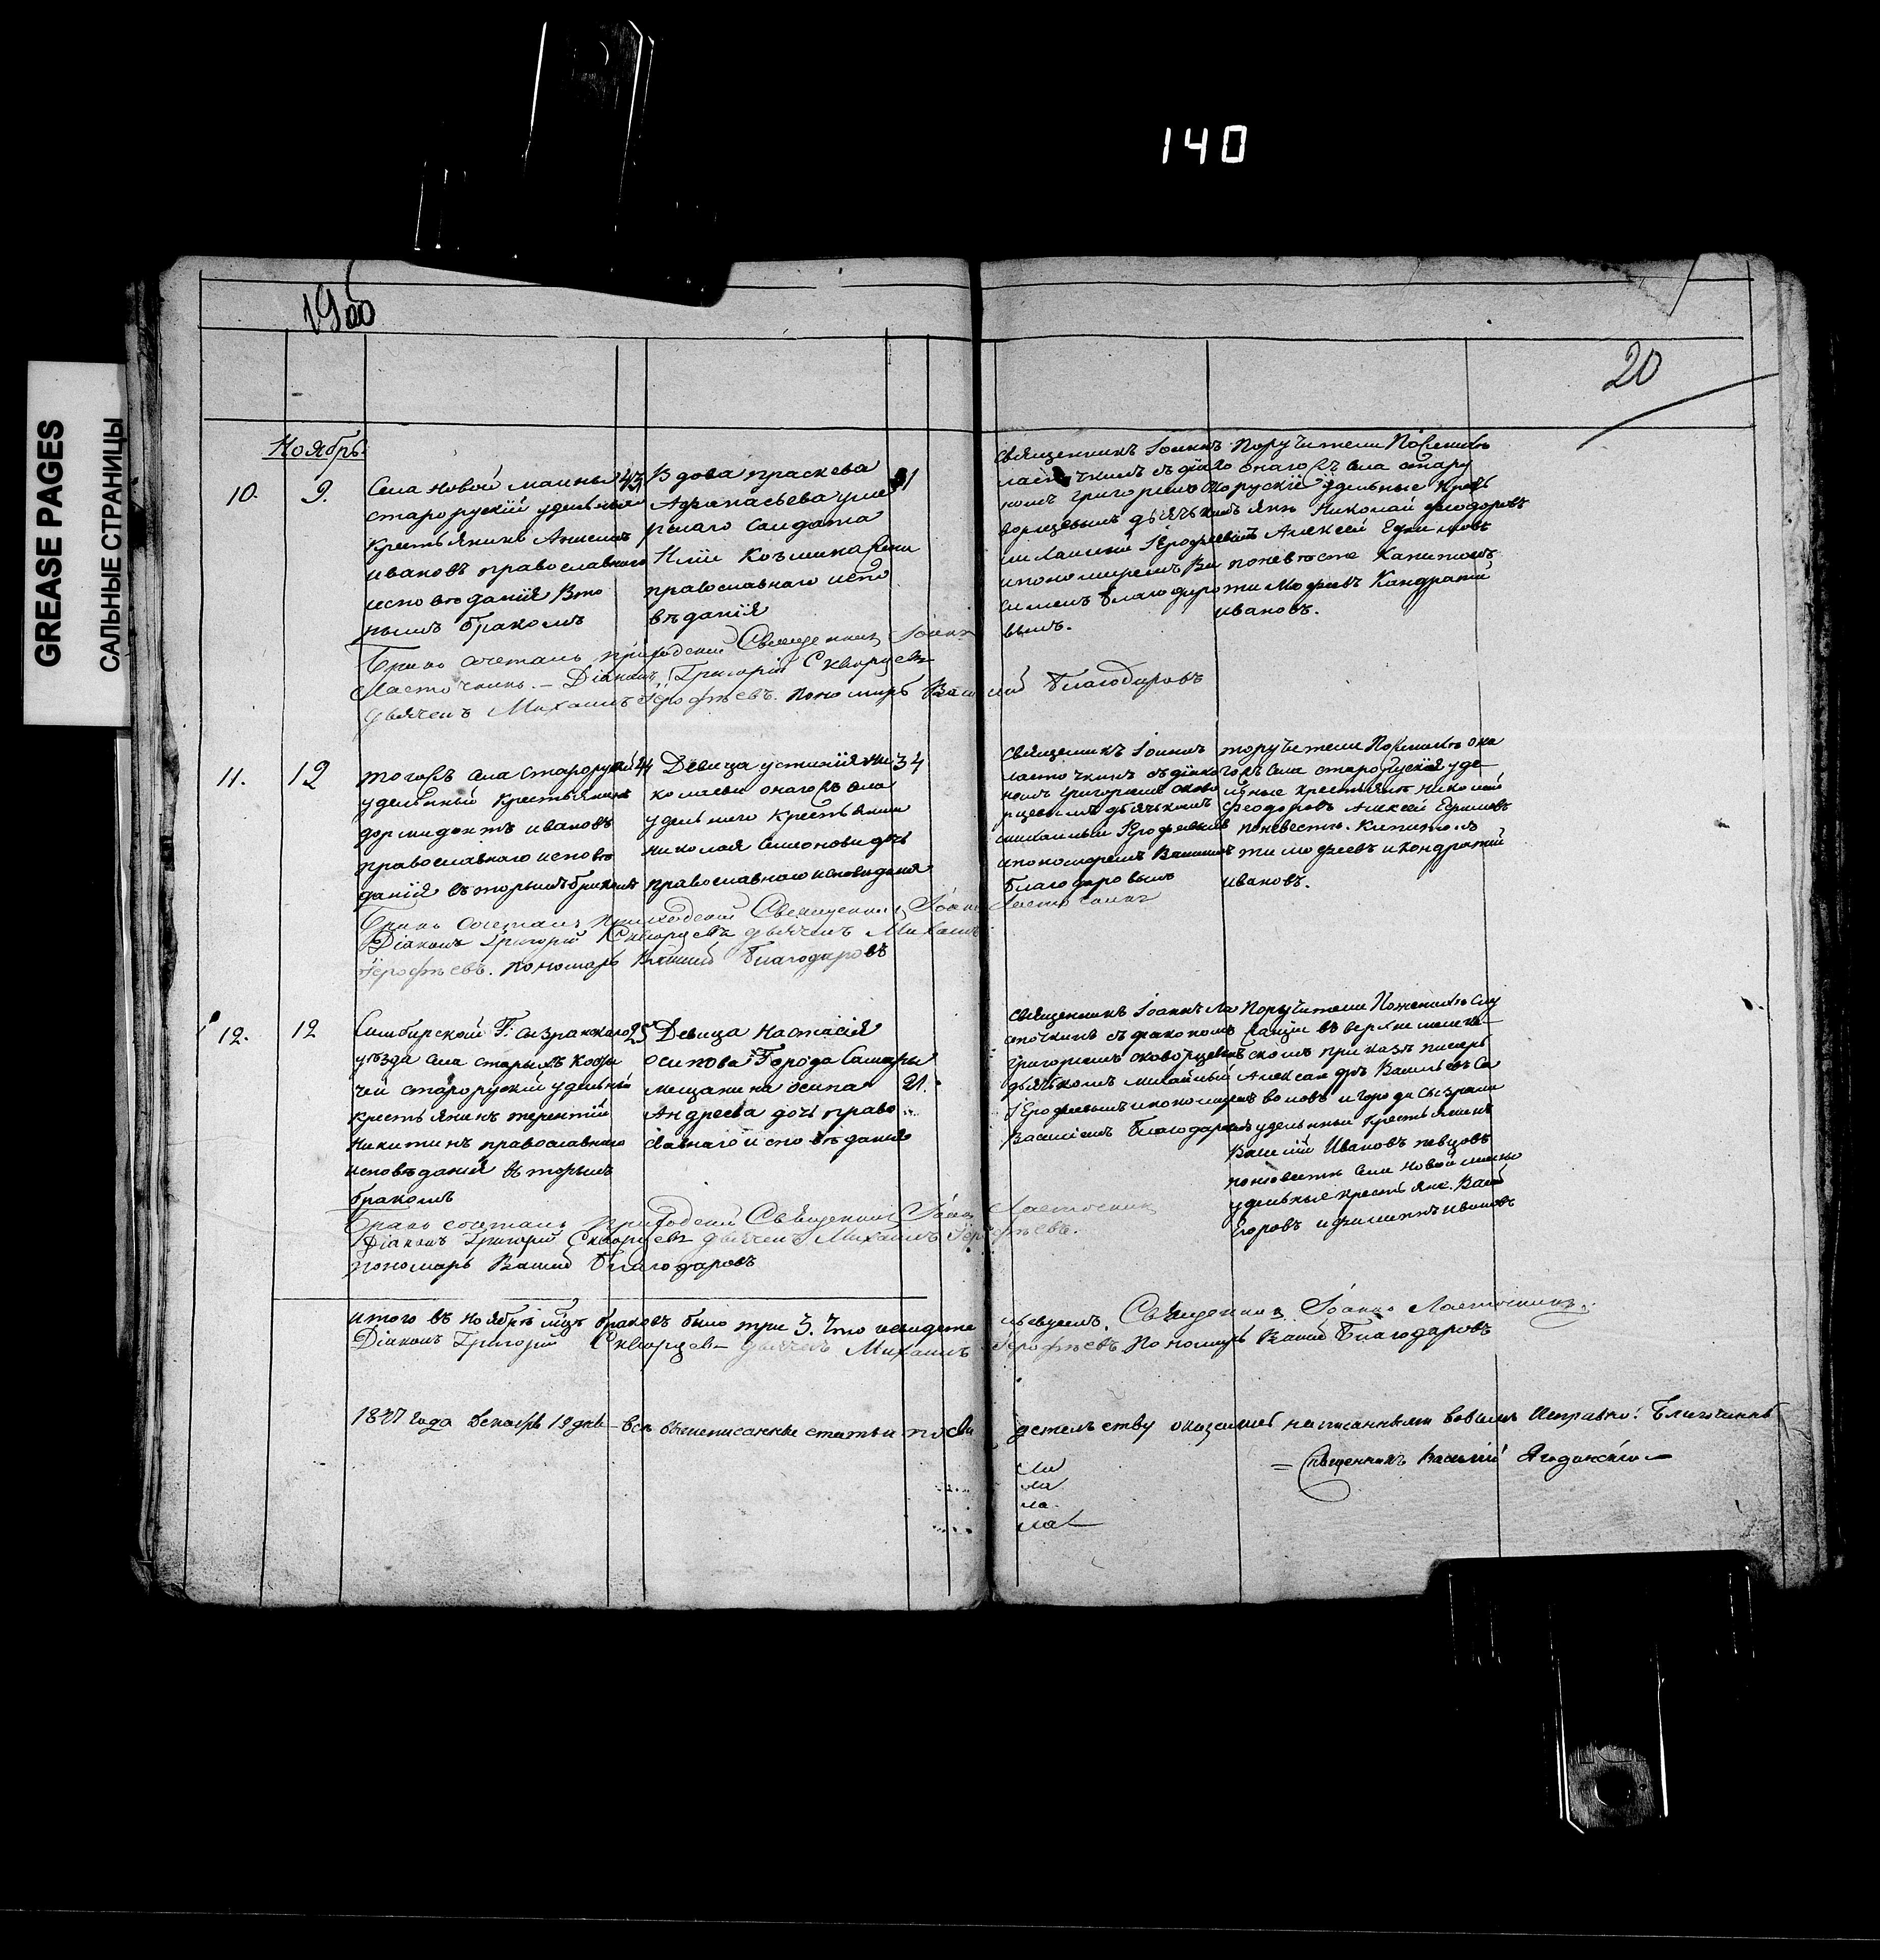 140
GREASE PAGES
САЛЬНЫЕ СТРАНИЦЫ
20
Ноябрь
10.
9.
Села новой маины
старорускiй удельный
крестьянинъ
ивановъ православнаго
исповѣданiя Вто
рымъ бракомъ
43
Вдова праскева
Афанасьева уме
ршаго Салдата
Илiи Козмина
православнаго испо
вѣданiя
священникъ Iоаннъ
ласточкинъ съ дiако
номъ григорiемъ скво
рцевымъ дьячькомъ
михаиломъ Iерофеевымъ
и пономаремъ Ва
силiемъ благодаро
вымъ.
Поручители По женихѣ
онагожъ села стару
рускiе удельные кресть
яне Николай феодоровъ
Алексей
по невѣсте Капитонъ
тимофѣевъ Кандратiй
ивановъ.
Бракъ сочеталъ приходской Священникъ Iоаннъ
Ласточкинъ. – Дiаконъ Григорiй Скворцевъ
дьячекъ Михаилъ Iерофѣевъ. пономарь Василiй Благодаровъ
11.
12
тогожъ села старорускiй
удельный крестьянинъ
дормидонтъ ивановъ
православнаго исповѣ
данiя вторымъ бракомъ
44
Девица устинiя ни
колаева онагожъ села
удельнаго крестьянина
николая семенова дочь
православнаго исповѣданiя
34
священникъ Iоаннъ
ласточкинъ съ дiако
номъ григорiемъ скво
рцевымъ дьячькомъ
михаиломъ Iерофеевымъ
и пономаремъ Василiемъ
благодаровымъ
поручители По женихѣ она
гожъ села старорускiя уде
льные крестьяне николай
феодоровъ Алексей
по невесте. Капитонъ
тимофеевъ и кондратiй
ивановъ.
Бракъ сочеталъ приходской Священникъ Iоаннъ Ласточкинъ
Дiаконъ Григорiй Скворцевъ дьячекъ Михаилъ
Iерофѣевъ. пономарь Василiй Благодаровъ
12.
12
Симбирской Г: сызранскаго
уѣзда села старыхъ
чей старорускiй удельный
крестьянинъ терентiй
никитинъ православнаго
исповѣданiя вторымъ
бракомъ
25
Девица Настасiя
осипова Города Самары
мещанина осипа
Андреева дочь право
славнаго исповѣданiя
21.
священникъ Iоаннъ Ла
сточкинъ съ дiакономъ
григорiемъ скворцевымъ
дьячькомъ михаиломъ
Iерофеевымъ и пономаремъ
Василiемъ благодаровымъ
Поручители По женихѣ
приказѣ писарь
Александръ Васильевъ Са
воновъ и города Сызрани
удельный крестьянинъ
Василiй Ивановъ певцовъ
по невесте села новой маины
удельные крестьяне. Василiй
Егоровъ и филиппъ ивановъ
Бракъ сочеталъ приходской Священникъ Iоаннъ Ласточкинъ
Дiаконъ Григорiй Скворцевъ дьячекъ Михаилъ Iерофѣевъ.
пономарь Василiй Благодаровъ
итого въ ноябрѣ мцѣ браковъ было три 3. Что и свидетельствуемъ. Священникъ Iоаннъ Ласточкинъ.
Дiаконъ Григорiй Скворцевъ дьячекъ Михаилъ Iерофѣевъ Пономарь Василiй Благодаровъ
года Декабря 19 дня все вышеписанные статьи по свидетельству оказались написанными Исправно: Благочинный
Священникъ Василiй